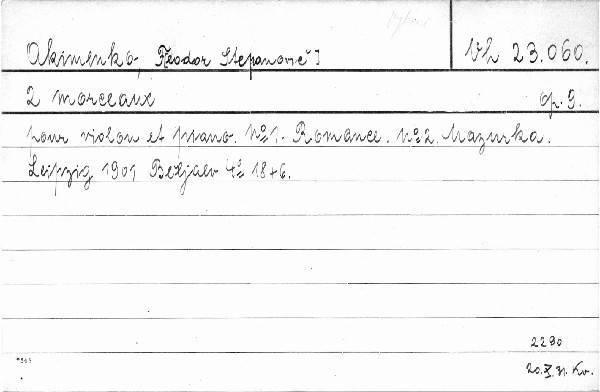 Akimenko, Feodor Stepanovič]
Vh 23.060.
2 morceaux
op. 9.
pour violon et piano. No 1. Romance. No 2. Mazurka.
Leipzig 1901 Beljaev 4o 18+6.
2290
20.X.31. Kv.